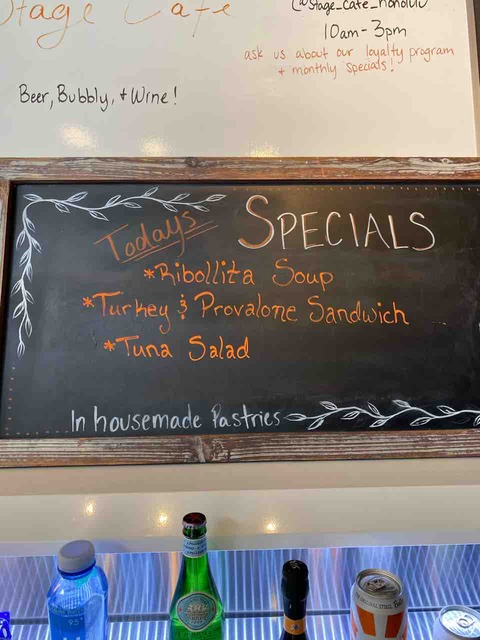 Stage Cafe
@stage_cafe_honolulu
10am-3pm
ask us about our loyalty program
+ monthly specials!
Beer, Bubbly, + Wine!
Todays SPECIALS
*Ribollita Soup
*Turkey & Provalone Sandwich
*Tuna Salad
In housemade Pastries